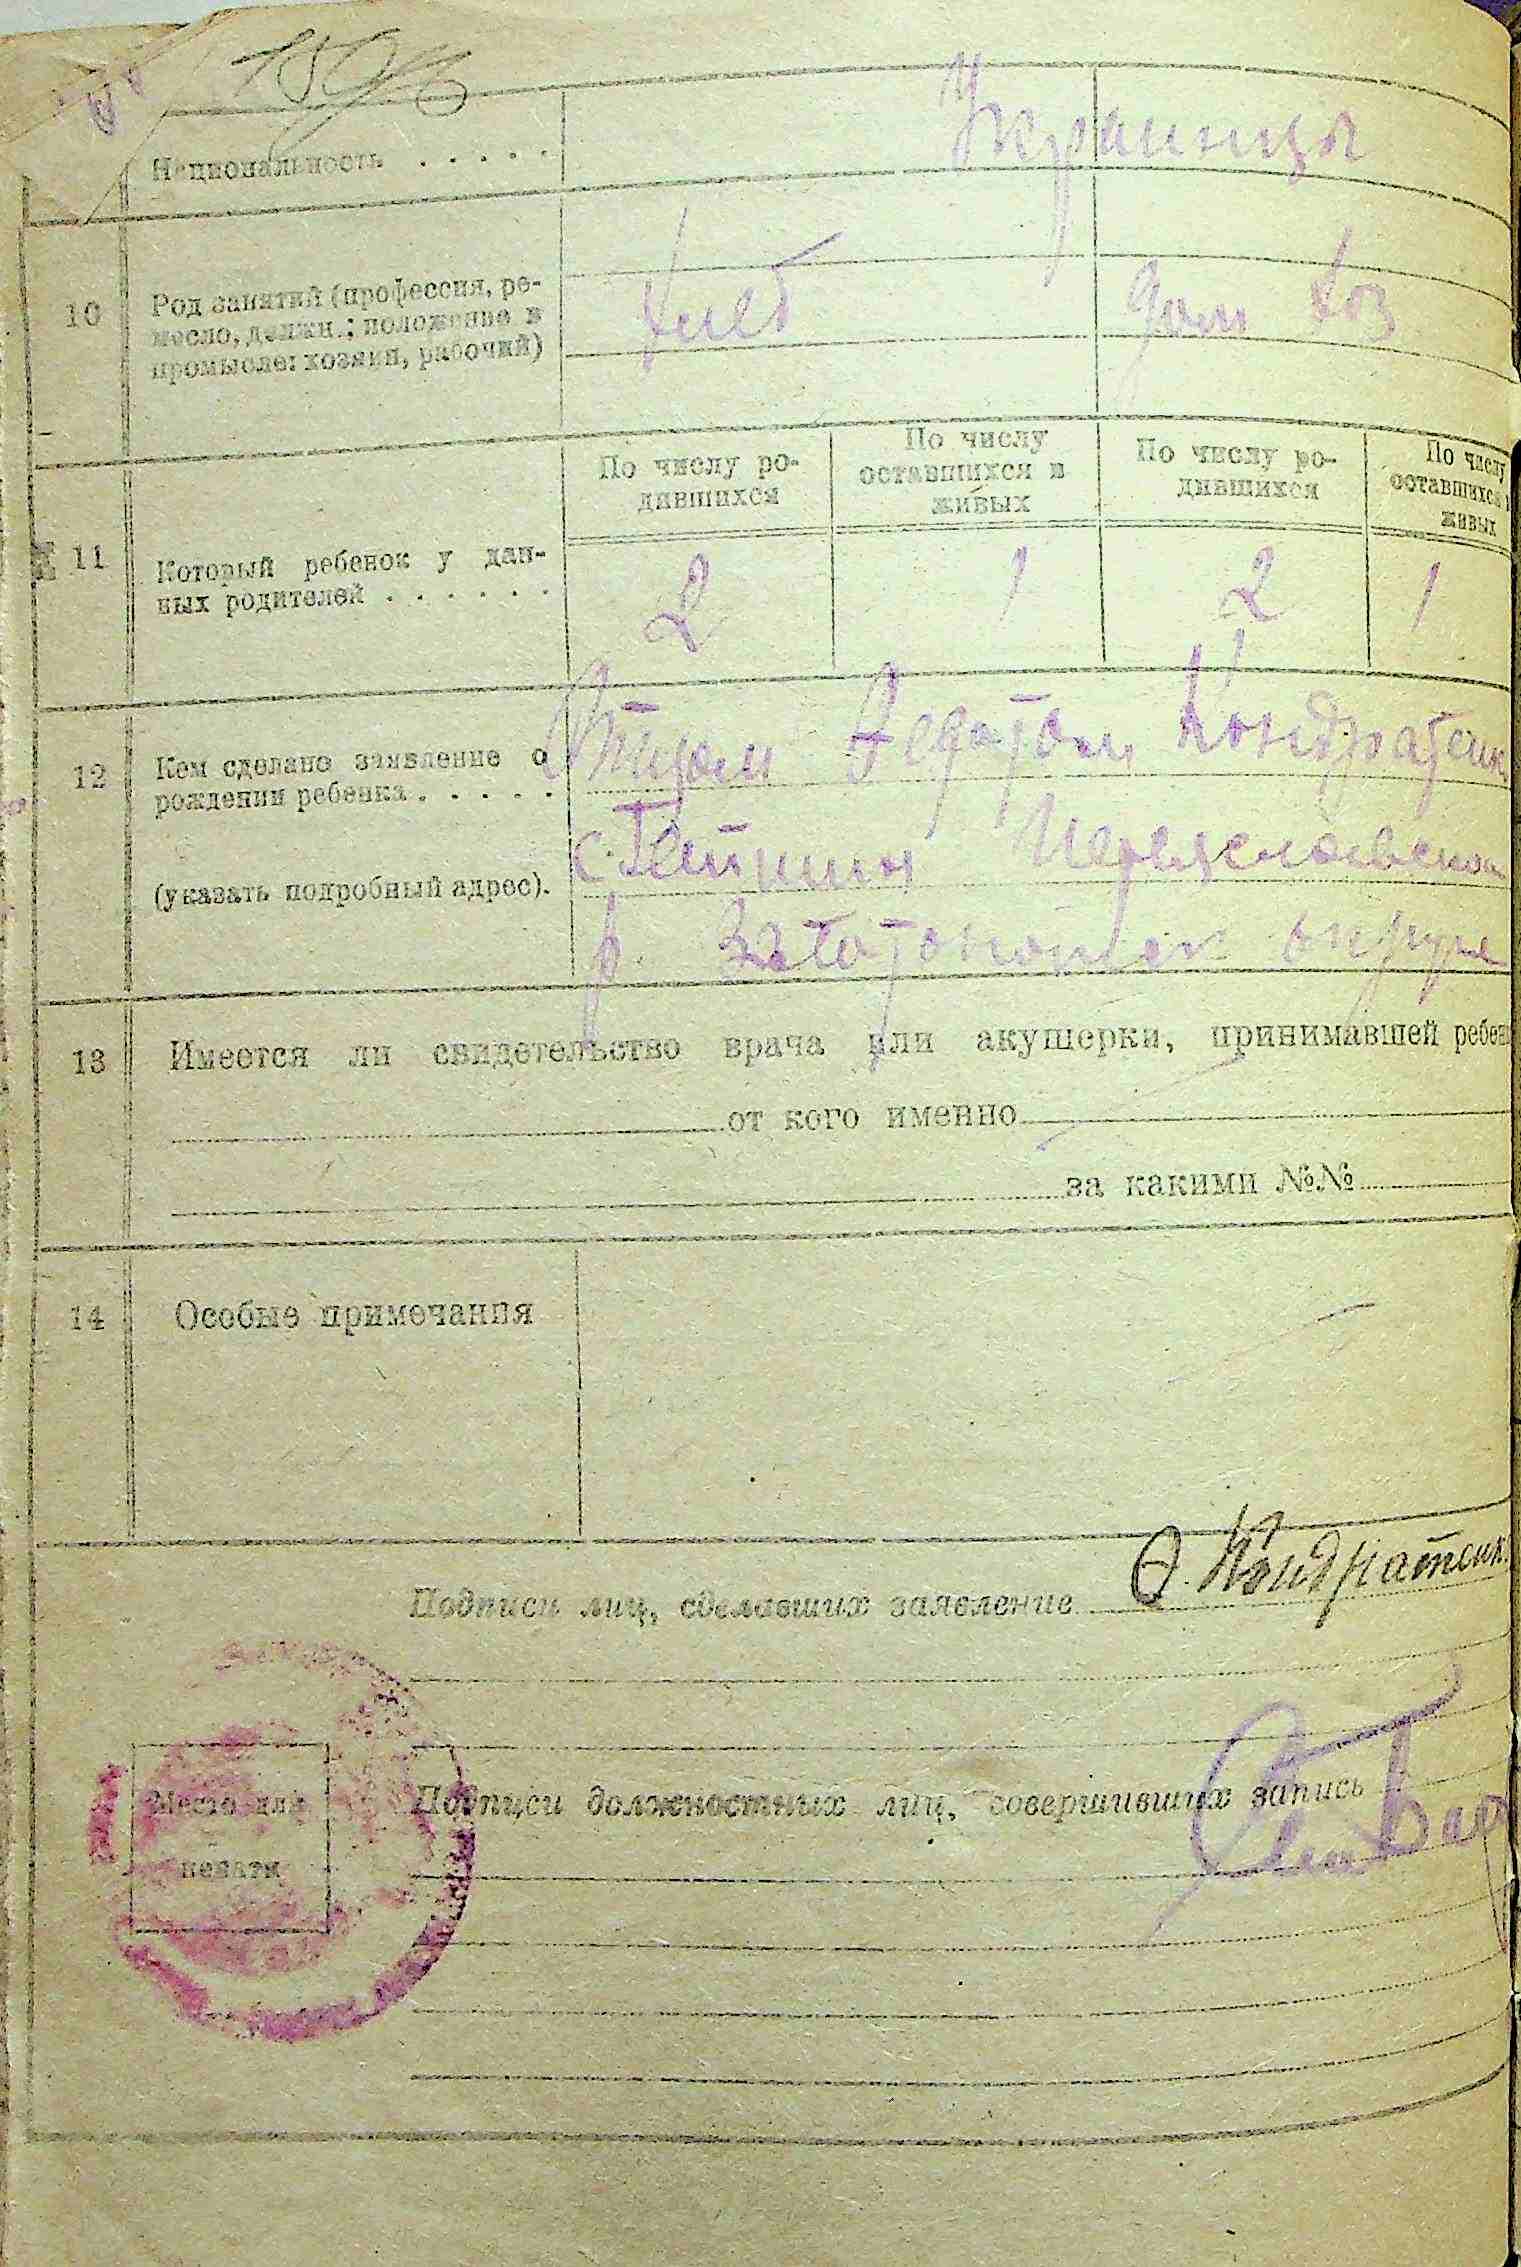 Национальность . . . . . Украинцы
10 Род занятий (профессия, ре-
месло, должн.; положение в
промысле: хозяин, рабочий)
хлеб дом хоз
По числу ро-
дившихся
По числу
оставшихся в
живых
По числу ро-
дившихся
По числу
оставшихся в
живых
11 Который ребенок у дан-
ных родителей . . . . . .
2 1 2 1
12 Кем сделано заявление о
рождении ребенка . . . . .
(указать подробный адрес).
Отцом Федотом Кондратенк
с.
р. округа
13 Имеется ли свидетельство врача или акушерки, принимавшей ребен
от кого именно
за какими №№
14 Особые примечания
Подписи лиц, сделавших заявление Ѳ. Кондратенк
Место для
печати
Подписи должностных лиц, совершивших запись